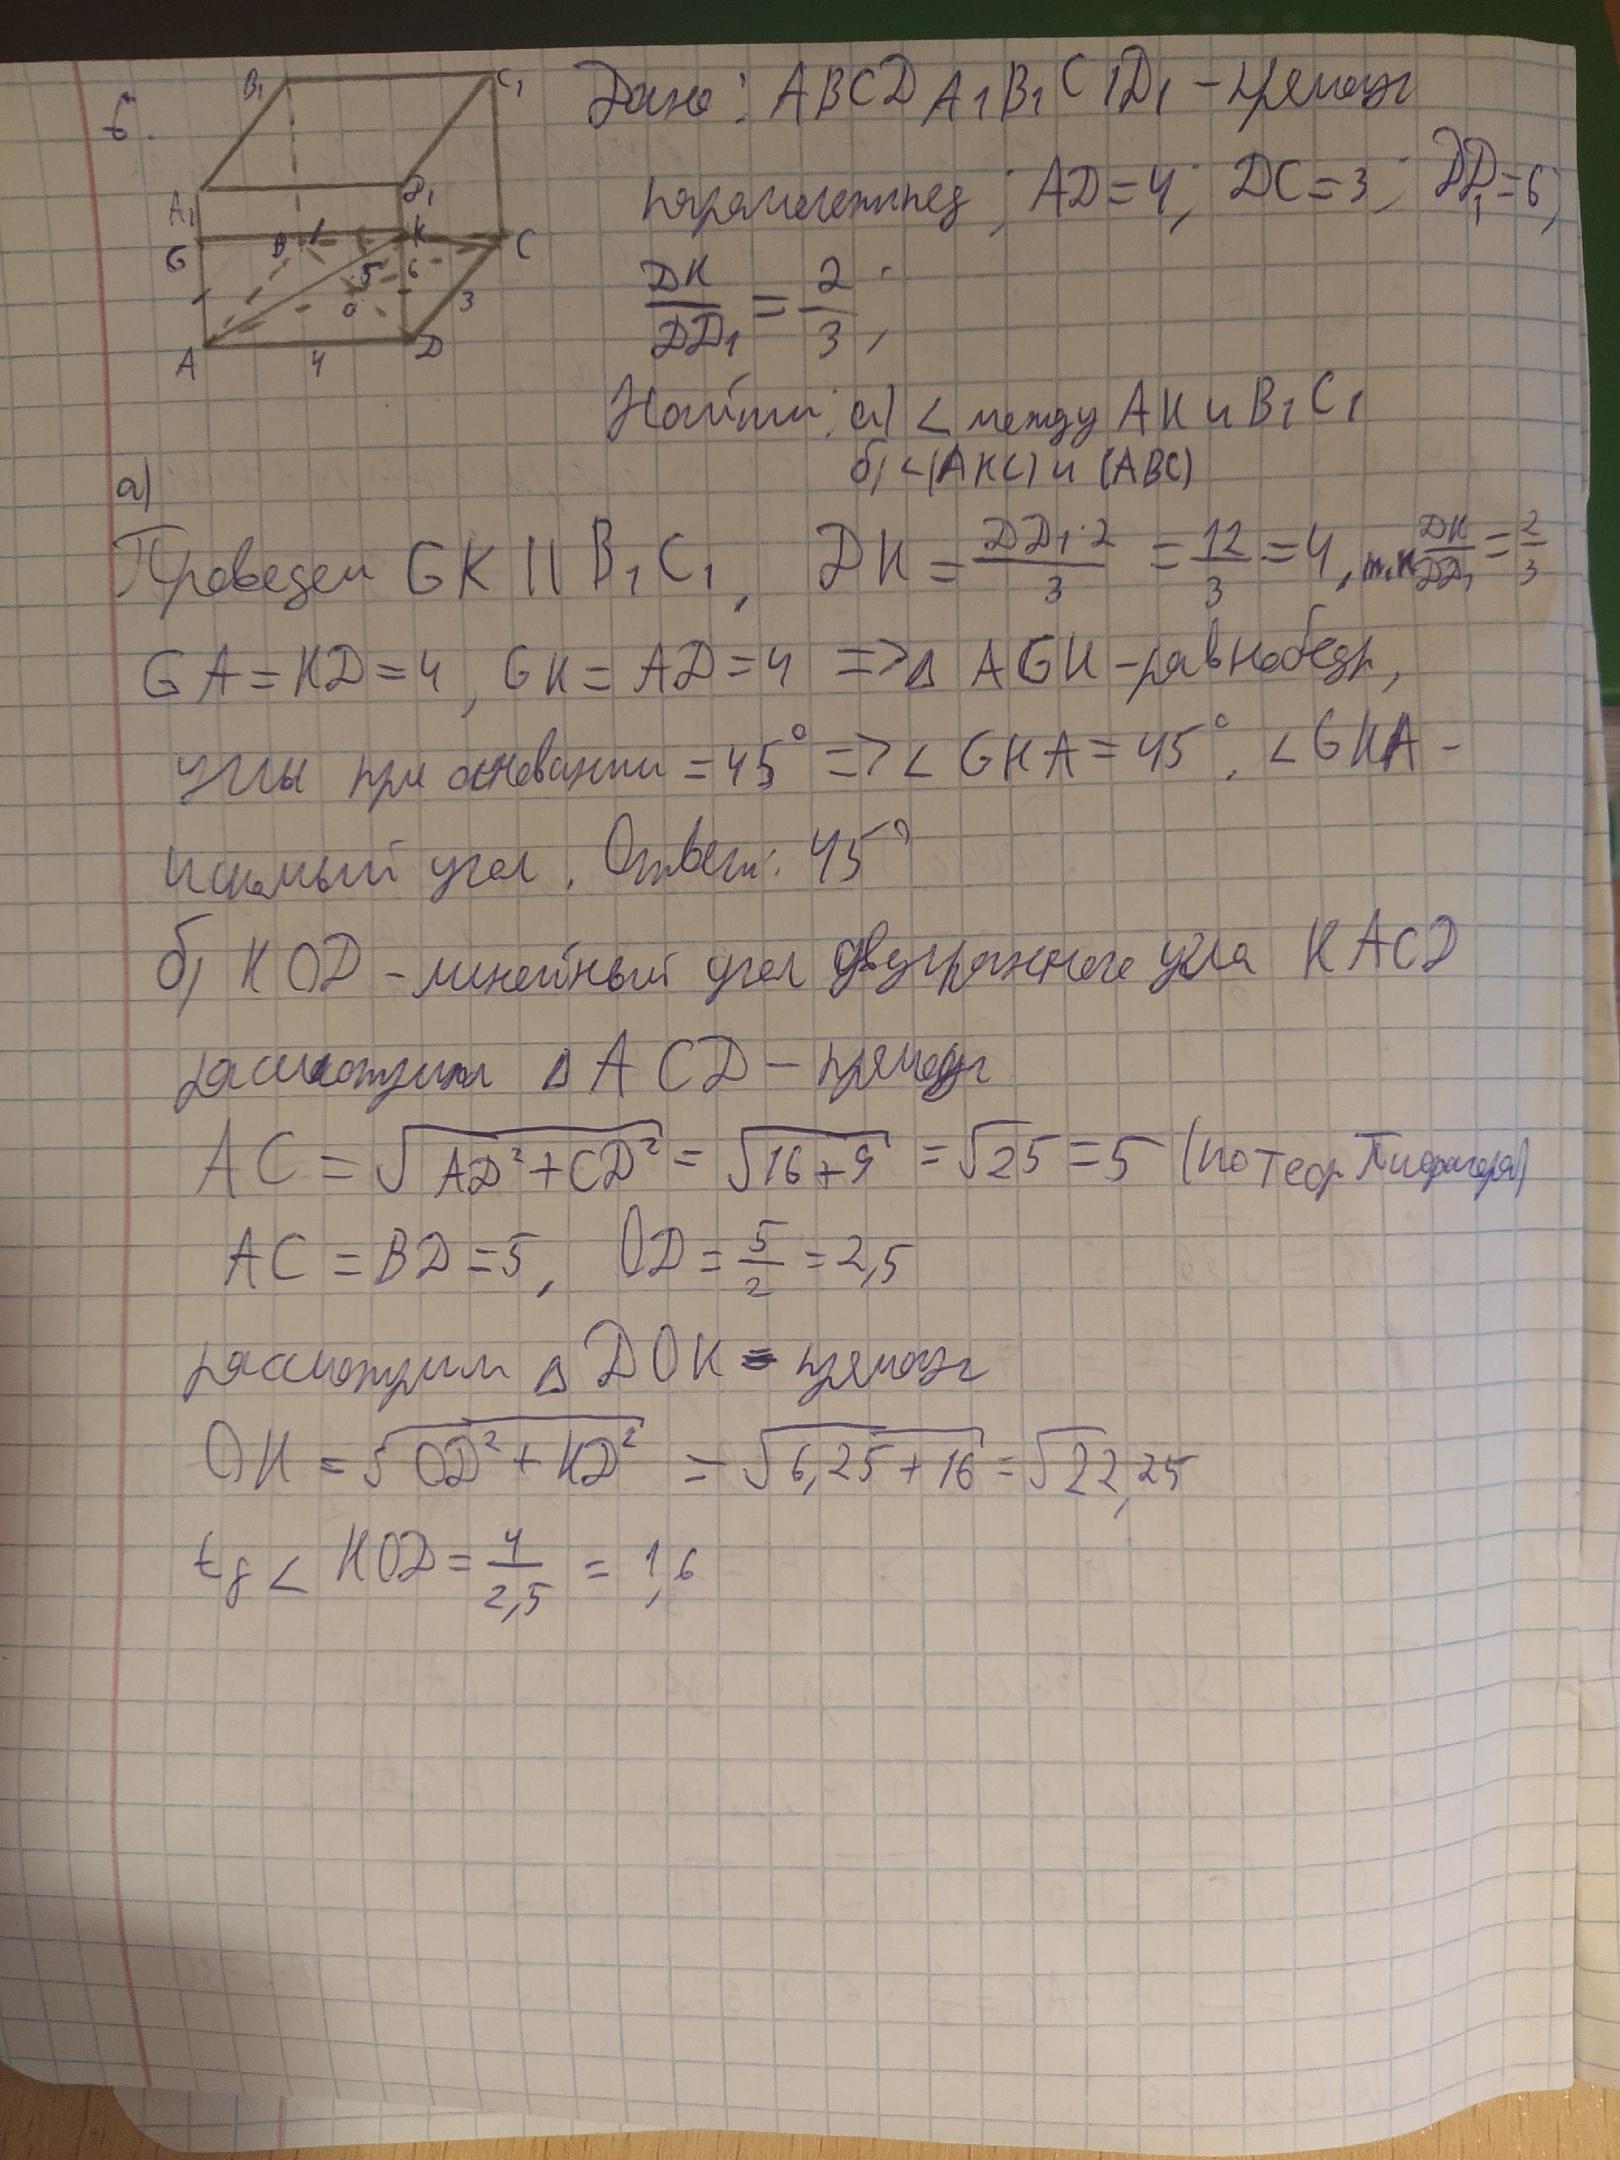 6.
B₁ C₁
A₁ D₁
G B K C
5 6
O 3
A 4 D
Дано: ABCDA₁B₁C₁D₁ - прямоуг
параллелепипед; AD=4; DC=3; DD₁=6;
DK/DD₁ = 2/3;
Найти: а) ∠ между AK и B₁C₁
б) ∠(AKC) и (ABC)
а)
Проведем GK || B₁C₁, DK = DD₁·2/3 = 12/3 = 4, т.к DK/DD₁ = 2/3
GA = KD = 4, GK = AD = 4 => Δ AGK - равнобедр,
углы при основании = 45° => ∠ GKA = 45°. ∠ GKA -
искомый угол. Ответ: 45°
б) KOD - линейный угол двугранного угла KACD
рассмотрим Δ ACD - прямоуг
AC = √(AD²+CD²) = √(16+9) = √25 = 5 (по теор Пифагора)
AC = BD = 5, OD = 5/2 = 2,5
рассмотрим Δ DOK - прямоуг
OK = √(OD² + KD²) = √(6,25+16) = √22,25
tg ∠ KOD = 4/2,5 = 1,6